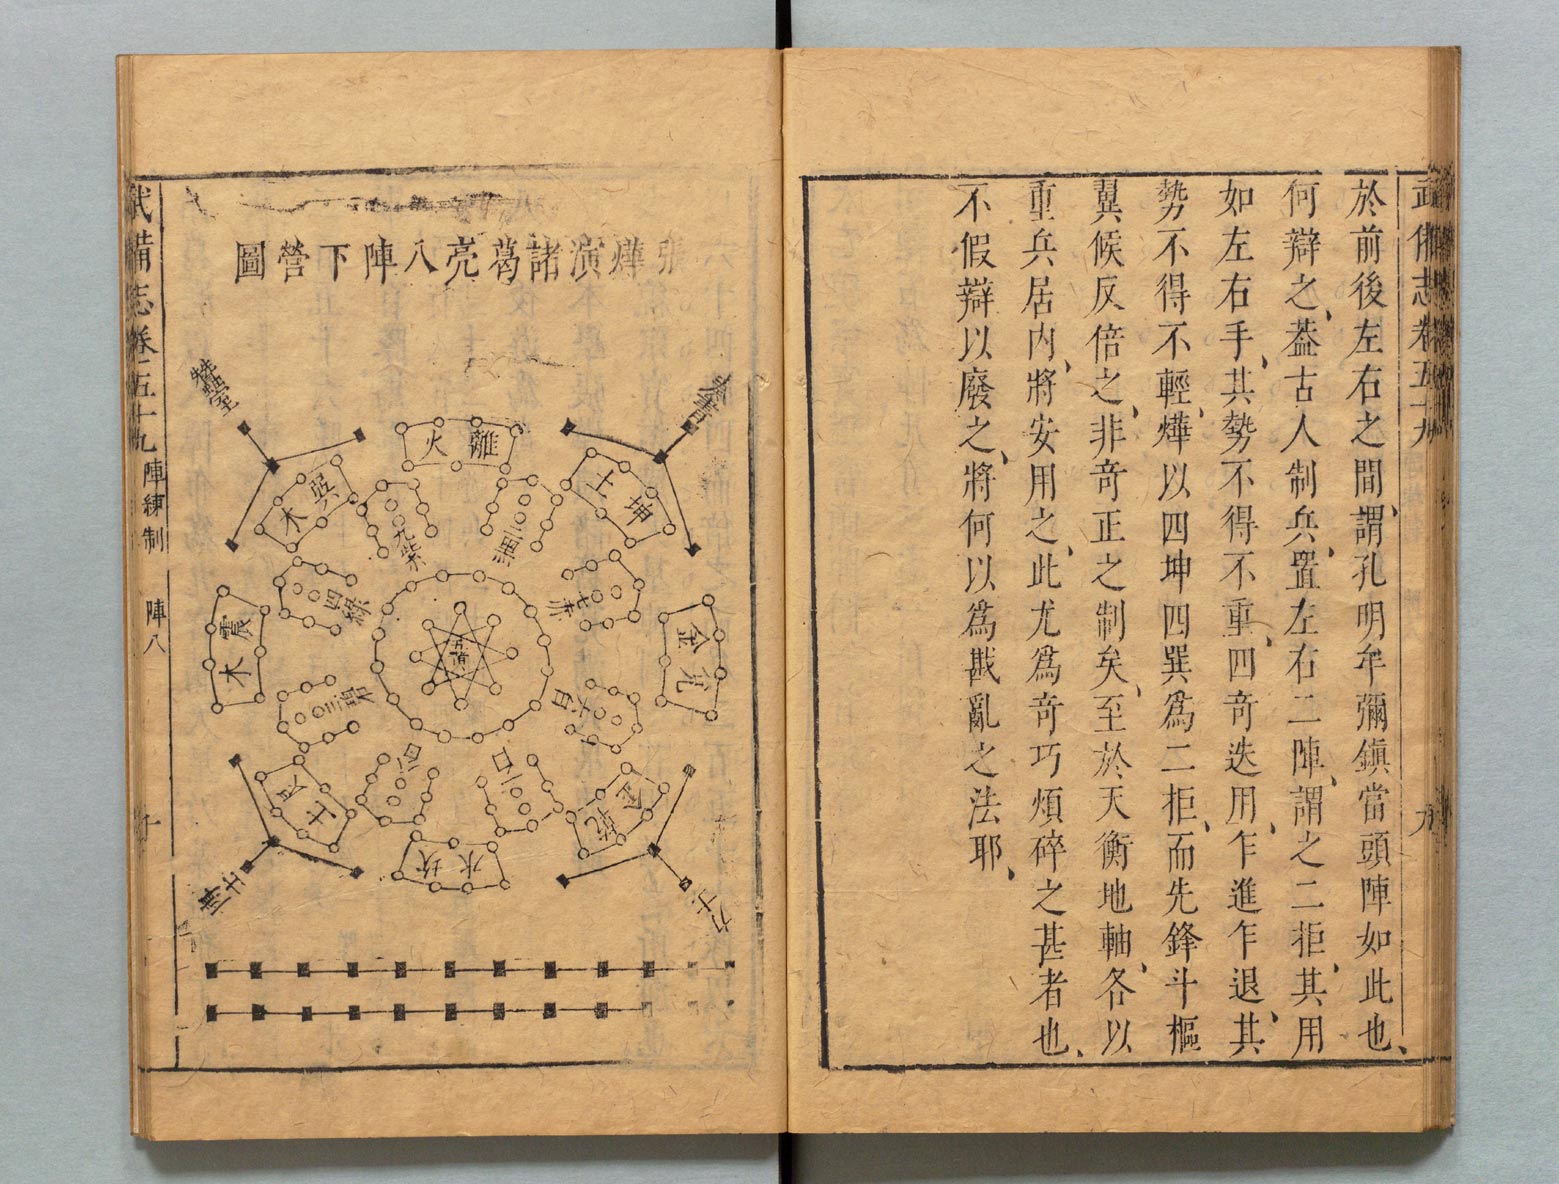 武備志卷五十九
九
於前後左右之間、謂孔明牟彌鎮當頭陣如此也、
何辯之、葢古人制兵、置左右二陣、謂之二拒、其用
如左右手、其勢不得不重、四奇迭用、乍進乍退、其
勢不得不輕、燁以四坤四巽爲二拒、而先鋒斗樞
翼候反倍之、非竒正之制矣、至於天衡地軸、各以
重兵居内、將安用之、此尤爲竒巧煩碎之甚者也、
不假辯以廢之、將何以爲戡亂之法耶、
張燁演諸葛亮八陣下營圖
離火
坤土
巽木
二黑
九紫
四綠
七赤
兌金
震木
五黃
三碧
六白
八白
一白
艮土
乾金
坎水
武備志卷五十九
陣練制
陣八
十